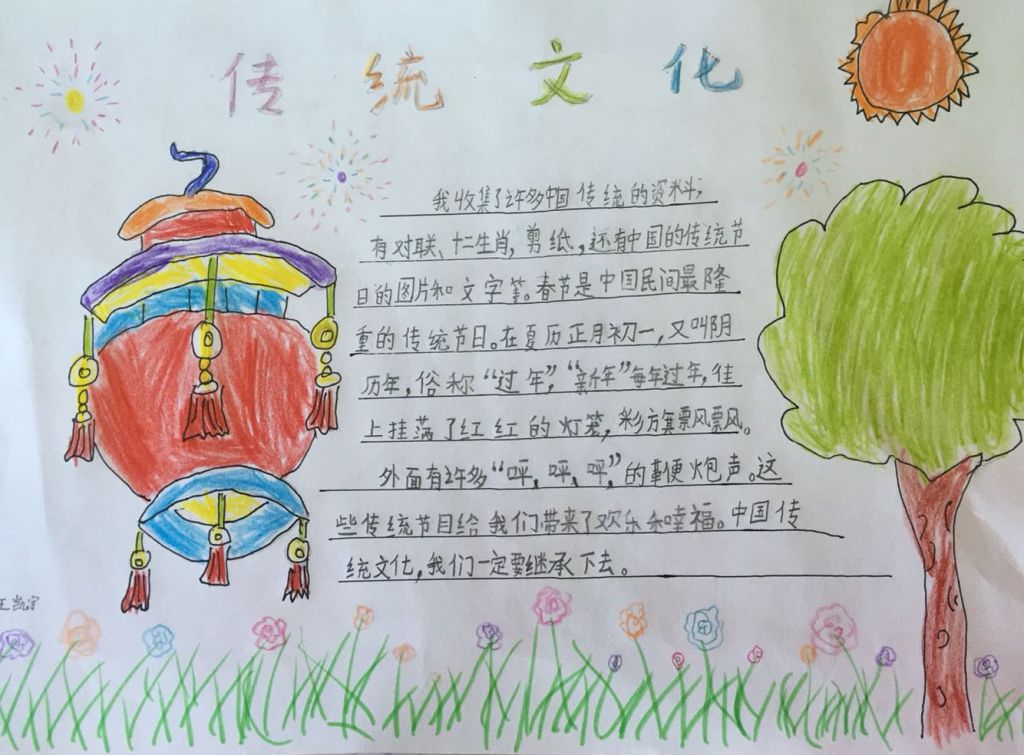 传统文化
我收集了许多中国传统的资料,
有对联、十二生肖,剪纸,还有中国的传统节
日的图片和文字等。春节是中国民间最隆
重的传统节日。在夏历正月初一,又叫阴
历年,俗称“过年”,“新年”每年过年,街
上挂满了红红的灯笼,彩旗飘飘。
外面有许多“呯,呯,呯,”的鞭炮声。这
些传统节日给我们带来了欢乐和幸福。中国传
统文化,我们一定要继承下去。
王凯宇